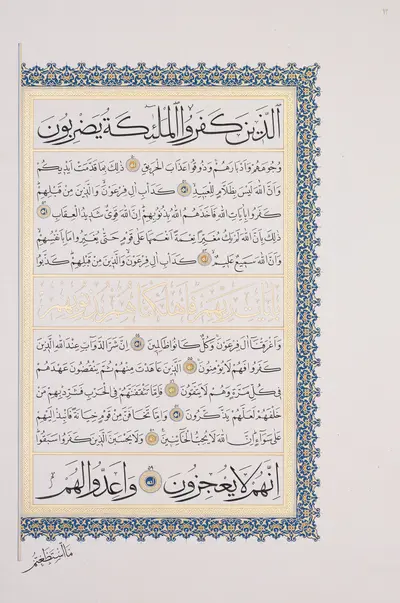 الذين كفروا الملئكة يضربون
وجوههم وأدبارهم وذوقوا عذاب الحريق ذلك بما قدمت أيديكم
وأن الله ليس بظلام للعبيد كدأب آل فرعون والذين من قبلهم
كفروا بآيات الله فأخذهم الله بذنوبهم إن الله قوي شديد العقاب
ذلك بأن الله لم يك مغيرا نعمة أنعمها على قوم حتى يغيروا ما بأنفسهم
وأن الله سميع عليم كدأب آل فرعون والذين من قبلهم كذبوا
بآيات ربهم فأهلكناهم بذنوبهم
وأغرقنا آل فرعون وكل كانوا ظالمين إن شر الدواب عند الله الذين
كفروا فهم لا يؤمنون الذين عاهدت منهم ثم ينقضون عهدهم
في كل مرة وهم لا يتقون فإما تثقفنهم في الحرب فشرد بهم من
خلفهم لعلهم يذكرون وإما تخافن من قوم خيانة فانبذ إليهم
على سواء إن الله لا يحب الخائنين ولا يحسبن الذين كفروا سبقوا
إنهم لا يعجزون وأعدوا لهم
ما استطعتم